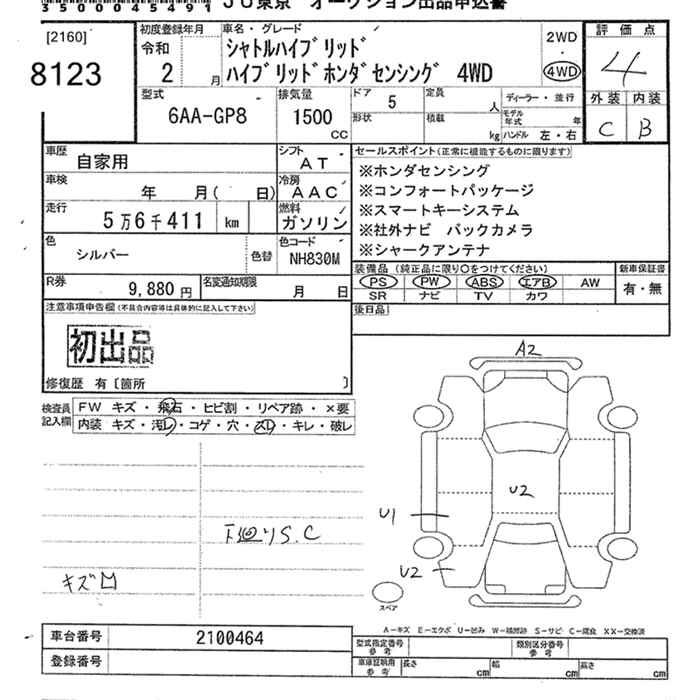 35000045491 JU東京 オークション出品申込書
[2160]
8123
初度登録年月
令和
2 月
車名・グレード
シャトルハイブリッド
ハイブリッドホンダセンシング 4WD
2WD
4WD
評価点
4
外装 内装
C B
型式
6AA-GP8
排気量
1500
CC
ドア 5
形状
定員 人
積載 kg
ディーラー・並行
モデル年式 年
ハンドル 左・右
車歴 自家用
シフト AT
車検 年 月( 日)
冷房 AAC
走行 5万6千411 km
燃料 ガソリン
色 シルバー 色替
色コード NH830M
R券 9,880円
名変通知期限 月 日
セールスポイント(正常に機能するものに限ります)
※ホンダセンシング
※コンフォートパッケージ
※スマートキーシステム
※社外ナビ バックカメラ
※シャークアンテナ
装備品(純正品に限り○をつけてください)
PS PW ABS エアB AW
SR ナビ TV カワ
新車保証書
有・無
後日品
注意事項申告欄(不具合内容等は具体的に記入して下さい)
初出品
修復歴 有〔箇所 〕
検査員記入欄
FW キズ・飛石・ヒビ割・リペア跡・×要
内装 キズ・汚レ・コゲ・穴・スレ・キレ・破レ
下廻りS.C
キズ凹
A2
U2
U1
U2
スペア
A-キズ E-エクボ U-凹み W-補修跡 S-サビ C-腐食 XX-交換済
車台番号 2100464
登録番号
型式指定番号 参考
類別区分番号 参考
車庫証明用 参考
長さ cm 幅 cm 高さ cm